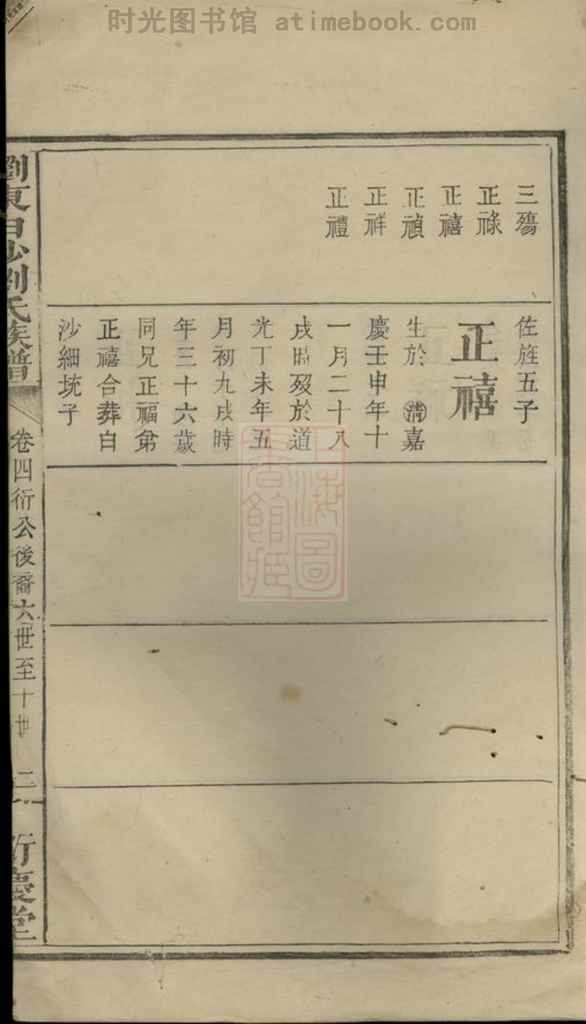 时光图书馆 atimebook.com
三殤
正祿
正禧
正禎
正祥
正禮
佐旌五子
正禧
生於清嘉
慶壬申年十
一月二十八
戌時歿於道
光丁未年五
月初九戌時
年三十六歲
同兄正福弟
正禧合葬白
沙細坑子
劉氏族譜
卷四衍公後裔六世至十世
二
慶堂